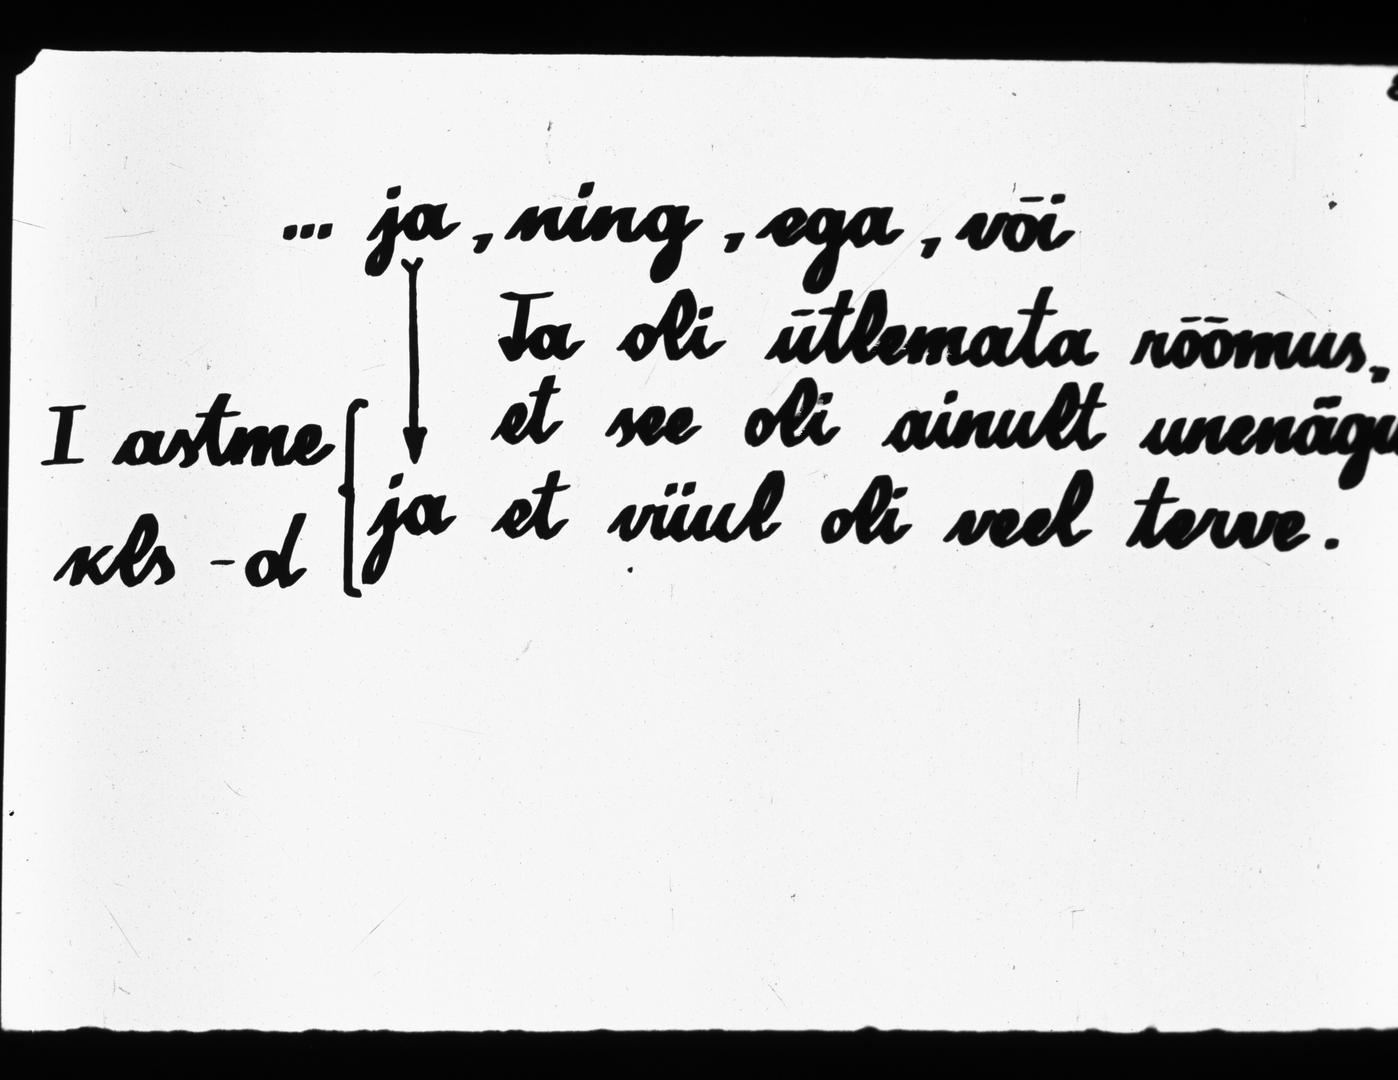 ... ja, ning, ega, või
Ta oli ütlemata rõõmus,
et see oli ainult unenägu
ja et viiul oli veel terve.
I astme
kls -d